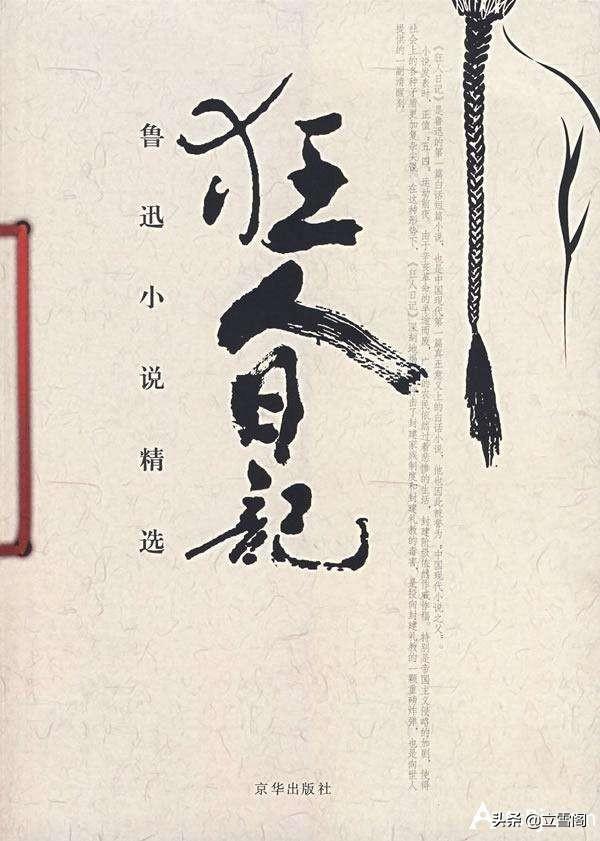 狂人日记
鲁迅小说精选
《狂人日记》是鲁迅的第一篇白话短篇小说,也是中国现代第一篇真正意义上的白话小说,他也因此被誉为“中国现代小说之父”。
小说发表时,正值“五·四”运动前夜。由于辛亥革命的半途而废,广的农民依然过着悲惨的生活,封建阶级依然作威作福。特别是帝国主义侵略的加剧,使得
社会上的各种矛盾更加复杂尖锐。在这种形势下,《狂人日记》深刻地出了封建家族制度和封建礼教的毒害,是投向封建礼教的一颗重磅炸弹,也是向世人
提供的一副清醒剂。
京华出版社
头条 @立雪阁